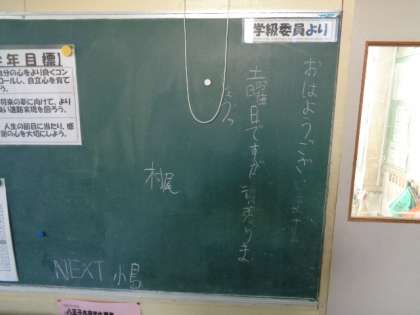 学級委員より
おはようございます
土曜日ですが頑張りま
しょう
NEXT 小島
年目標】
自分の心をより良くコン
ロールし、自立心を育て
う。
将来の夢に向けて、より
良い進路実現を図ろう。
人生の節目に当たり、感
の心を大切にしよう。